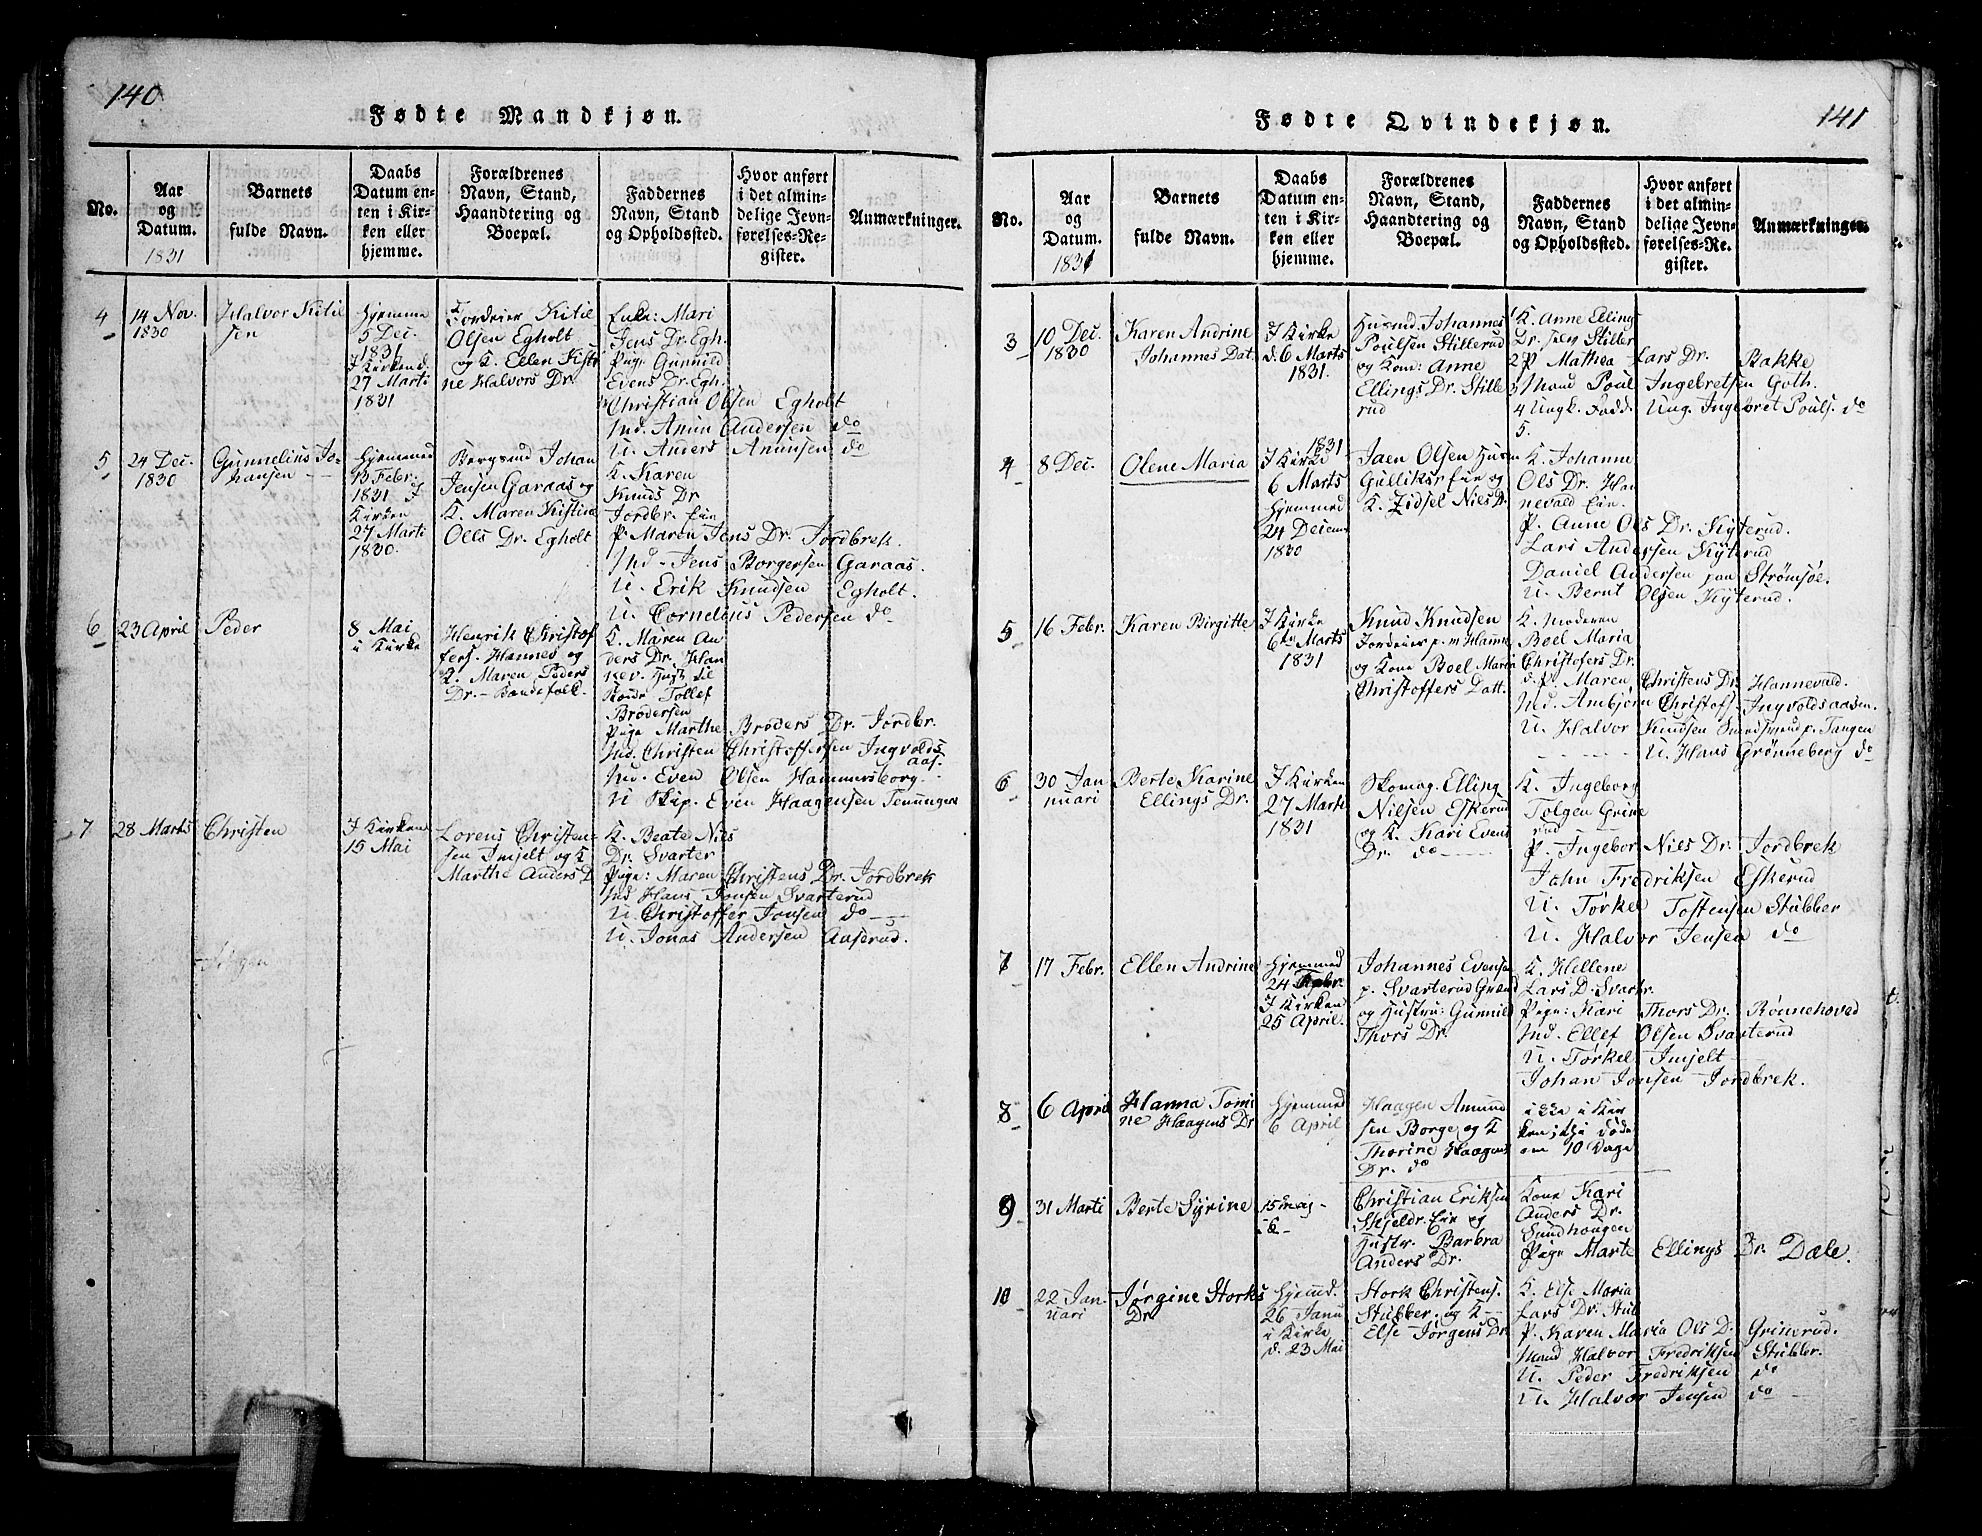 140
Fødte Mandkjøn.
No.
Aar og Datum.
1831
Barnets fulde Navn.
Daabs Datum enten i Kirken eller hjemme.
Forældrenes Navn, Stand, Haandtering og Boepæl.
Faddernes Navn, Stand og Opholdssted.
Hvor anført i det almindelige Jevnførelses-Register.
Anmærkninger.
4
14 Nov.
1830
Halvor Kitil
sen
Hjemme
5 Dec.
1831
I Kirken d.
27 Marti
1831
Jordeier Kitil
Olsen Egholt
og K. Ellen Kisti
ne Halvors Dr.
Enke: Mari
Jens Dr. Egh.
Pige Gunnild
Evens Dr. Egh.
Christian Olsen Egholt
Md. Amun Andersen do
U. Anders Amunsen do
5
24 Dec.
1830
Gunnelius Jo-
hansen
Hjemmed
13 Febr.
1831 I
Kirken
27 Marti
1830.
Bergmd Johan
Jensen Garaas og
K. Maren Kistine
Olls Dr. Egholt
K. Karen
Knuds Dr.
Jordbr. Eie
P. Maren Jens Dr. Jordbrek.
Md. Jens Borgersen Garaas.
U. Erik Knudsen Egholt.
U. Cornelius Pedersen do
6
23 April
Peder
8 Mai
i Kirke
Henrik Christof
fers. Hannev og
K. Maren Peders
Dr. - Bondefolk.
K. Maren An
ders Dr. Han
nev. Hust. til
Tollef
Brodersen
Pige Marthe Broders Dr. Jordbr.
Md. Christen Christoffersen Ingvolds
aas.
Md. Even Olsen Hammersborg
U Skip. Even Haagensen Tenungen
7
28 Marts
Christen
I Kirken
15 Mai
Lorens Christen-
sen Imjelt og K
Marthe Anders D.
K. Beate Nils
Dr. Svarter
Pige: Maren Christens Dr. Jordbrek
Md Hans Jonsen Svarterud
U. Christoffer Jonsen do
U. Jonas Andersen Anserud.
141
Fødte Qvindekjøn.
No.
Aar og Datum.
1831
Barnets fulde Navn.
Daabs Datum enten i Kirken eller hjemme.
Forældrenes Navn, Stand, Haandtering og Boepæl.
Faddernes Navn, Stand og Opholdssted.
Hvor anført i det almindelige Jevnførelses-Register.
Anmærkninger.
3
10 Dec.
1830
Karen Andrine
Johannes Dat.
I Kirke
d. 6 Marts
1831.
Husmd. Johannes
Poulsen Stillerud
og Kone: Anne
Ellings Dr. Stille
rud
1 K. Anne Ellings
Dr. Stiller
2 P. Mathea Lars Dr. Bakke
3 Mand Poul Ingebretsen Goth.
4 Ungk. Fadd. Ung. Ingebret Pouls. do
5.
4
8 Dec.
Olene Maria
1831
I Kirke
6 Marts
Hjemmed
24 Decem
1830
Jaen Olsen Husm
Gulliksr Eie og
K. Zidsel Niels Dr.
K. Johanne
Ols Dr. Han
nevald Eie.
P. Anne Ols Dr. Kyterud.
Lars Andersen Kyterud
Daniel Andersen paa Strømsøe.
U. Bernt Olsen Kyterud.
5
16 Febr.
Karen Birgitte
I Kirke
6te Marts
1831
Knud Knudsen
Jordeier p. m Hanne
og Kone Boel Maria
Christoffers Datt.
K. Moderen
Boel Maria
Christofers Dr.
d. P. Maren Christens Dr. Hannevald.
Md. Ambjørn Christofs. Ingvoldsaasen.
U. Halvor Knudsen p. Tangen
U. Hans Grønneberg do
6
30 Jan
nuari
Berte Karine
Ellings Dr.
I Kirken
27 Marti
1831
Skomag. Elling
Nilsen Eskerud
og K. Kari Evens
Dr. do
K. Ingeborg
Tolgen Grine
rud
P. Ingebor Niels Dr. Jordbrek
John Fredriksen Eskerud
U. Torkel Tostensen Stubber
U. Halvor Jensen do
7
17 Febr.
Ellen Andrine
Hjemmed
24 Febr.
I Kirken
25 April.
Johannes Evensen
p. Svarterud Grænd
og Hustru: Gunnild
Thors Dr.
K. Hellene
Lars D. Svartr.
Pige: Kari Thors Dr. Rønnehoved
Md. Ellef Olsen Svarterud
U. Torkel Imjelt
Johan Jonsen Jordbrek.
8
6 April
Hanna Tomi
ne Haagens Dr
Hjemmed
6 April
Haagen Amund
sen Borge og K
Thorine Haagens
Dr. do
ikke i Kir
ken, thi døde
om 10 Dage
9
31 Marti
Berte Syrine
15 Maj
Christian Eriksen
Skjeldr. Eie og
Hustr. Barbra
Anders Dr.
Kone Kari
Anders Dr.
Sundhougen
Pige Marte Ellings Dr. Dæle.
10
22 Jan-
uari
Jørgine Storks
Dr
Hjemd.
26 Janu
i Kirke
d. 23 Mai
Stork Christens.
Stubber, og K
Else Jørgens Dr
K. Else Maria
Lars Dr. Stub
P. Karen Maria Ols D. Grinerud.
Mand Halvor Fredriksen Stubber.
U. Peder Fredriksen do
U. Halvor Jensen do